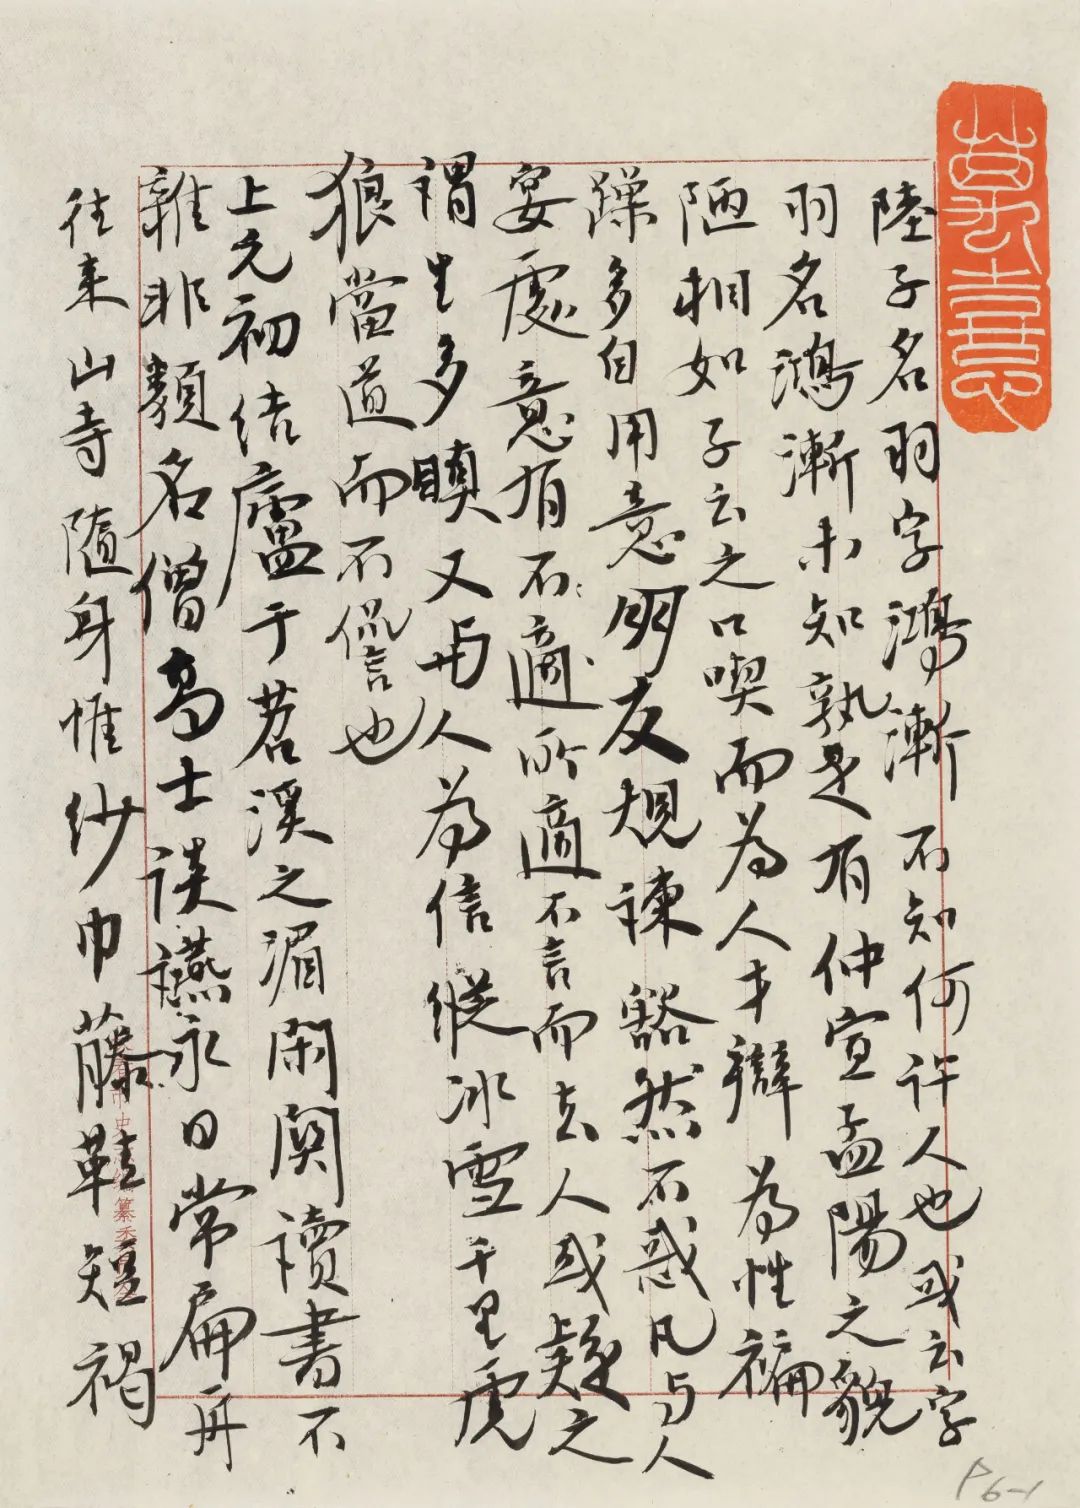 陸子名羽字鴻漸不知何許人也或云字
羽名鴻漸未知孰是有仲宣孟陽之貌
陋相如子云之口喫而為人才辯為性褊
躁多自用意朋友規諫豁然不惑凡与人
宴處意有不適所適不言而去人或疑之
謂生多瞋又与人為信縱冰雪千里虎
狼當道而不諐也
上元初結廬于苕溪之湄閑關讀書不
雜非類名僧高士談讌永日常扁舟
往来山寺隨身惟紗巾藤鞋短褐
纂委
P6-1